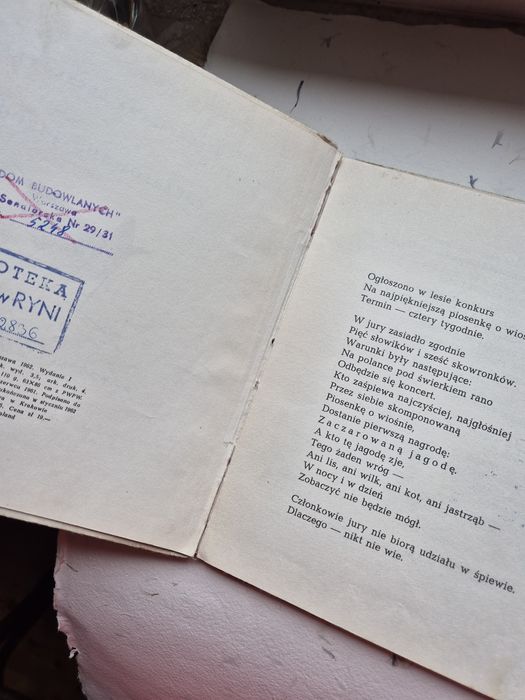 DOM BUDOWLANYCH"
Warszawa
Senatorska Nr 29/31
5248
OTEKA
w RYNI
2836
1962. Wydanie I
wyd. 3,5; ark. druk. 4.
110 g, 61X86 cm z PWPW.
1961. Podpisano do
w styczniu 1962
w Krakowie
Cena zł 19,—
oland
Ogłoszono w lesie konkurs
Na najpiękniejszą piosenkę o wios
Termin — cztery tygodnie.
W jury zasiadło zgodnie
Pięć słowików i sześć skowronków.
Warunki były następujące:
Na polance pod świerkiem rano
Odbędzie się koncert.
Kto zaśpiewa najczyściej, najgłośniej
Przez siebie skomponowaną
Piosenkę o wiośnie,
Dostanie pierwszą nagrodę:
Zaczarowaną jagodę.
A kto tę jagodę zje,
Tego żaden wróg —
Ani lis, ani wilk, ani kot, ani jastrząb —
W nocy i w dzień
Zobaczyć nie będzie mógł.
Członkowie jury nie biorą udziału w śpiewie.
Dlaczego — nikt nie wie.